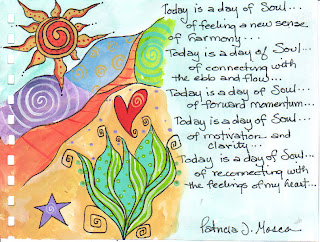 Today is a day of Soul...
of feeling a new sense
of harmony...
Today is a day of Soul...
of connecting with
the ebb and flow...
Today is a day of Soul...
of forward momentum...
Today is a day of Soul...
of motivation and
clarity...
Today is a day of Soul...
of reconnecting with
the feelings of my heart...
Patricia J. Mosca